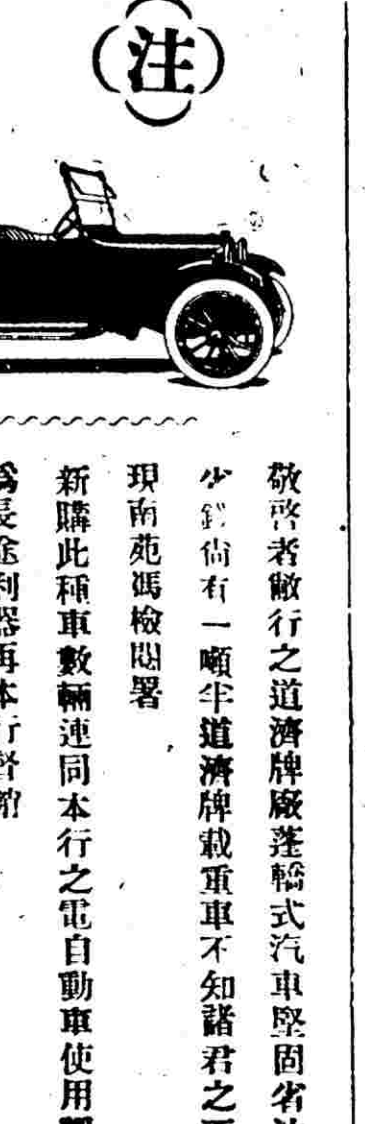 注
敬啓者敝行之道濟牌廠蓬轎式汽車堅固省
少 尙有一噸半道濟牌載重車不知諸君之
現南苑馮檢閱署
新購此種車數輛連同本行之電自動車使用
爲長途利器再本行